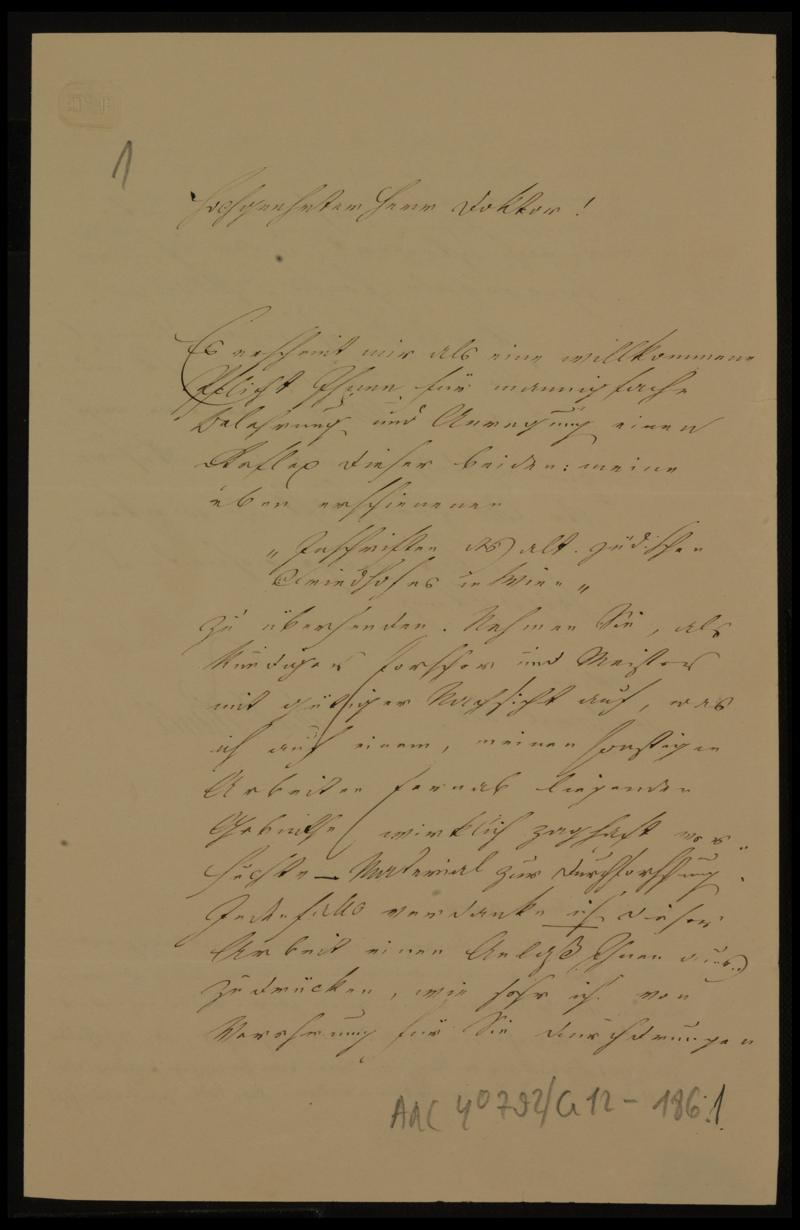 1
Hochgeehrter Herr Doktor!
Es erscheint mir als eine willkommene
Pflicht Ihnen für mannigfache
Belehrung und Anregung einen
Reflex dieser beiden: meine
eben erschienenen
„Inschriften des alt. jüdischen
Friedhofes in Wien„
zu übersenden. Nehmen Sie, als
kundiger Forscher und Meister
mit gütiger Nachsicht auf, was
ich auf einem, meinen sonstigen
Arbeiten fernab liegenden
Gebiethe wirklich zaghaft ver-
suchte — Material zur Durchforschung.
Jedenfalls verdanke ich dieser
Arbeit einen Anlaß, Ihnen aus-
zudrücken, wie sehr ich von
Verehrung für Sie durchdrungen
ARC 4° 792/G 12 - 186.1